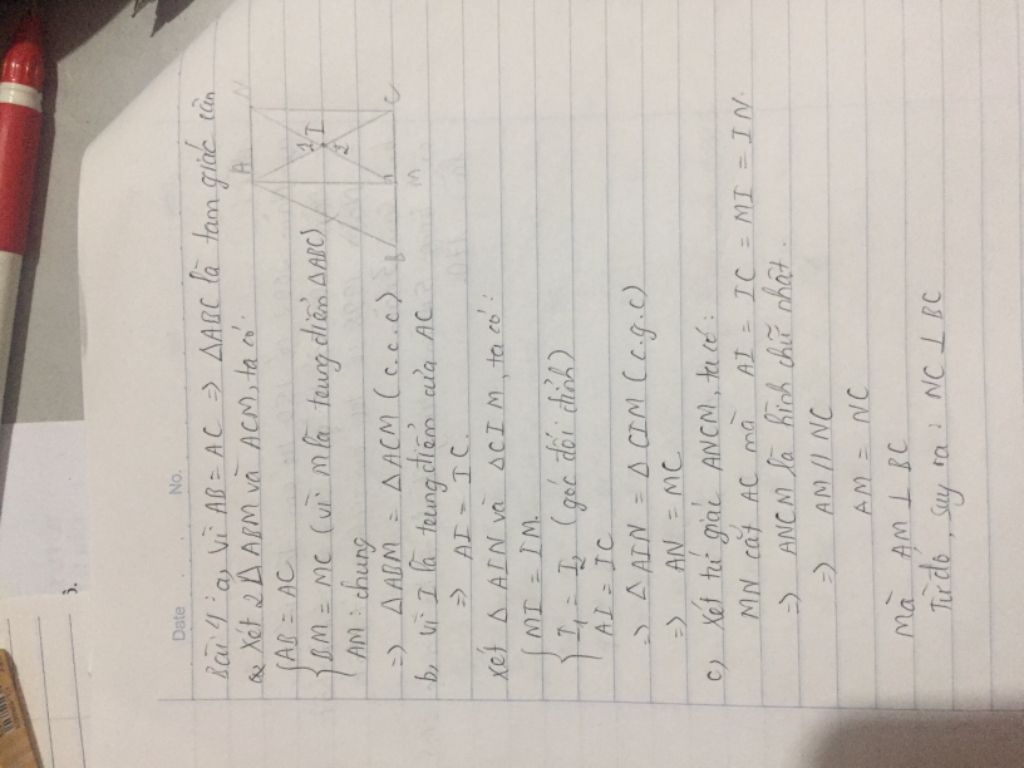 Date
No.
Bài 4: a, Vì AB = AC => ΔABC là tam giác cân
a Xét 2 Δ ABM và ACM, ta có:
AB = AC
BM = MC (vì M là trung điểm ΔABC)
AM: chung
=> ΔABM = ΔACM (c.c.c)
b, Vì I là trung điểm của AC
=> AI = IC
Xét Δ AIN và ΔCIM, ta có:
MI = IM
I1 = I2 (góc đối đỉnh)
AI = IC
=> Δ AIN = Δ CIM (c.g.c)
=> AN = MC
c, Xét tứ giác ANCM, ta có:
MN cắt AC mà AI = IC = MI = IN.
=> ANCM là hình chữ nhật.
=> AM // NC
AM = NC
Mà AM ⊥ BC
Từ đó, suy ra: NC ⊥ BC
A
N
1
I
2
B
M
C
3.